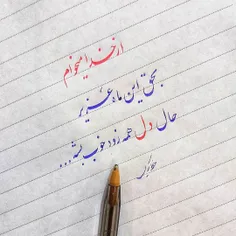 از خدا میخوام
بحق این ماه عزیز
حال دل همه زود خوب بشه...